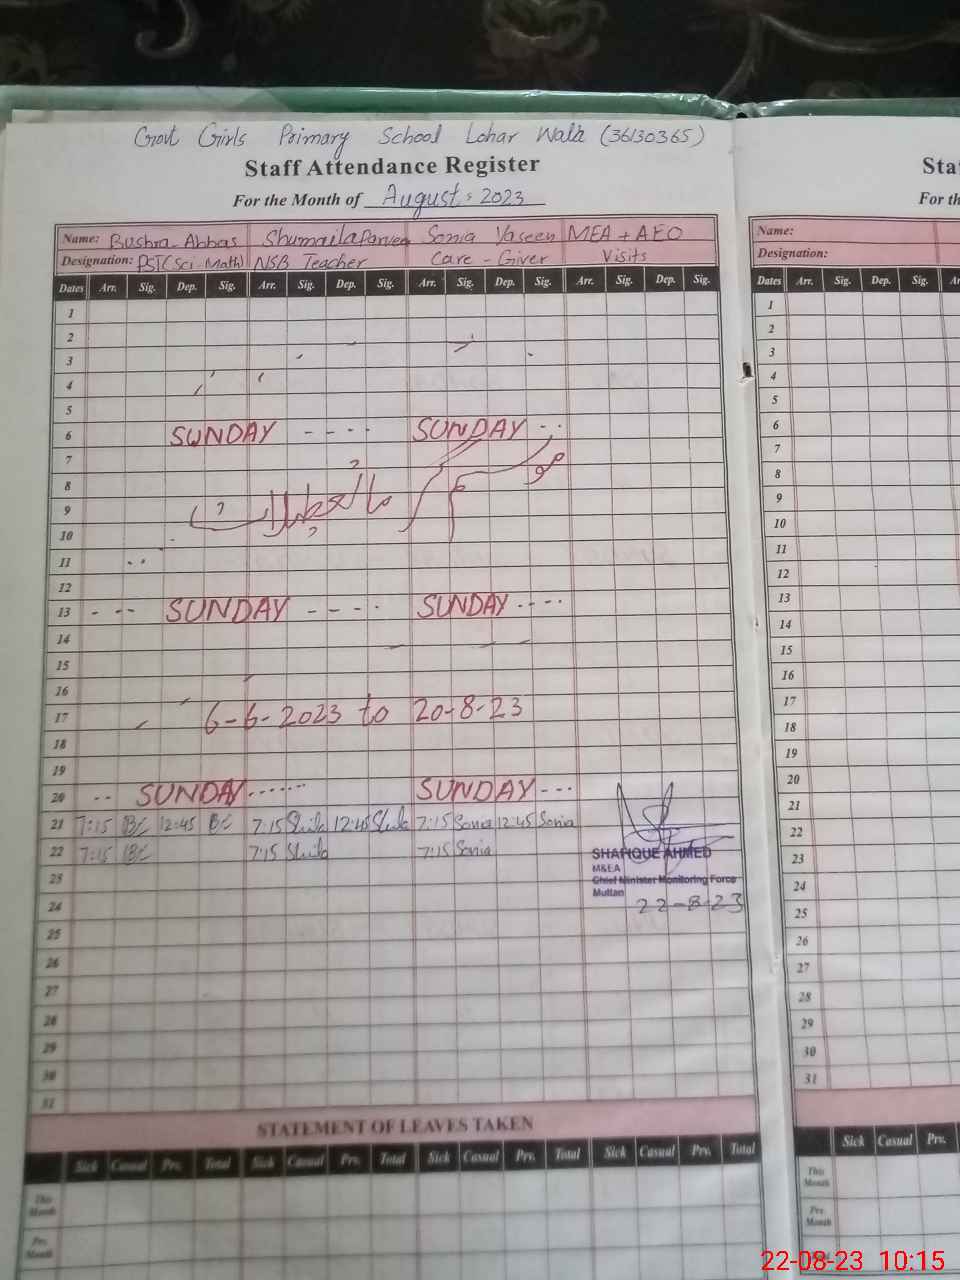 Govt Girls Primary School Lohar Wala (36130365)
Staff Attendance Register
For the Month of August 2023
Name: Bushra Abbas Shumaila Parveen Sonia Yaseen MEA + AEO
Designation: PST (Sci-Math) NSB Teacher Care - Giver Visits
Dates Arr. Sig. Dep. Sig. Arr. Sig. Dep. Sig. Arr. Sig. Dep. Sig. Arr. Sig. Dep. Sig.
1
2
3
4
5
6 SUNDAY - - - - SUNDAY - - -
7
8
9
موسم گرما کی تعطیلات
10
11
12
13 - - - SUNDAY - - - - SUNDAY - - - -
14
15
16
17 6-6-2023 to 20-8-23
18
19
20 - - SUNDAY - - - - - - SUNDAY - - -
21 7:15 12:45 7:15 12:45 7:15 Sonia 12:45 Sonia
22 7:15 7:15 7:15 Sonia
SHAFIQUE AHMED
M&EA
Chief Minister Monitoring Force
Multan
22-8-23
23
24
25
26
27
28
29
30
31
STATEMENT OF LEAVES TAKEN
Sick Casual Prv. Total Sick Casual Prv. Total Sick Casual Prv. Total Sick Casual Prv. Total
This Month
Prv. Month
Sta
For th
Name:
Designation:
Dates Arr. Sig. Dep. Sig. Ar
1
2
3
4
5
6
7
8
9
10
11
12
13
14
15
16
17
18
19
20
21
22
23
24
25
26
27
28
29
30
31
Sick Casual Prv.
This Month
Prv. Month
22-08-23 10:15